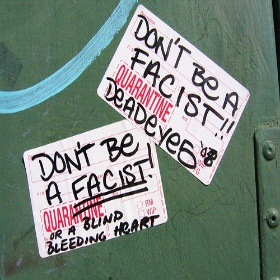 DON'T BE A
FACIST!!
QUARANTINE
DEADEYES
DON'T BE
A FACIST!
QUARANTINE
OR A BLIND
BLEEDING HEART
RM
WIP